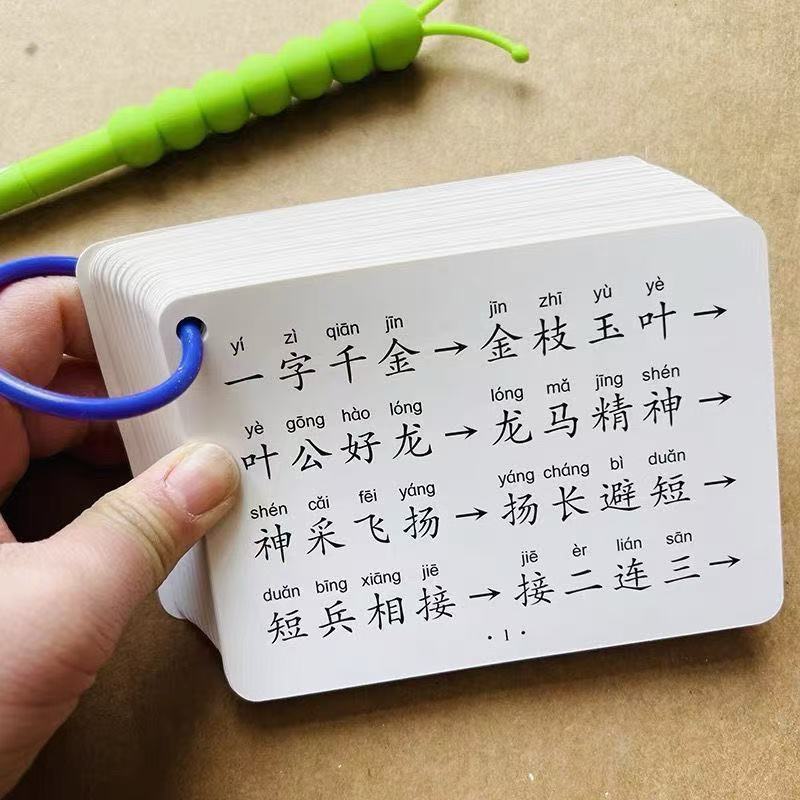 yí zì qiān jīn jīn zhī yù yè
一字千金→金枝玉叶→
yè gōng hào lóng lóng mǎ jīng shén
叶公好龙→龙马精神→
shén cǎi fēi yáng yáng cháng bì duǎn
神采飞扬→扬长避短→
duǎn bīng xiāng jiē jiē èr lián sān
短兵相接→接二连三→
·1·